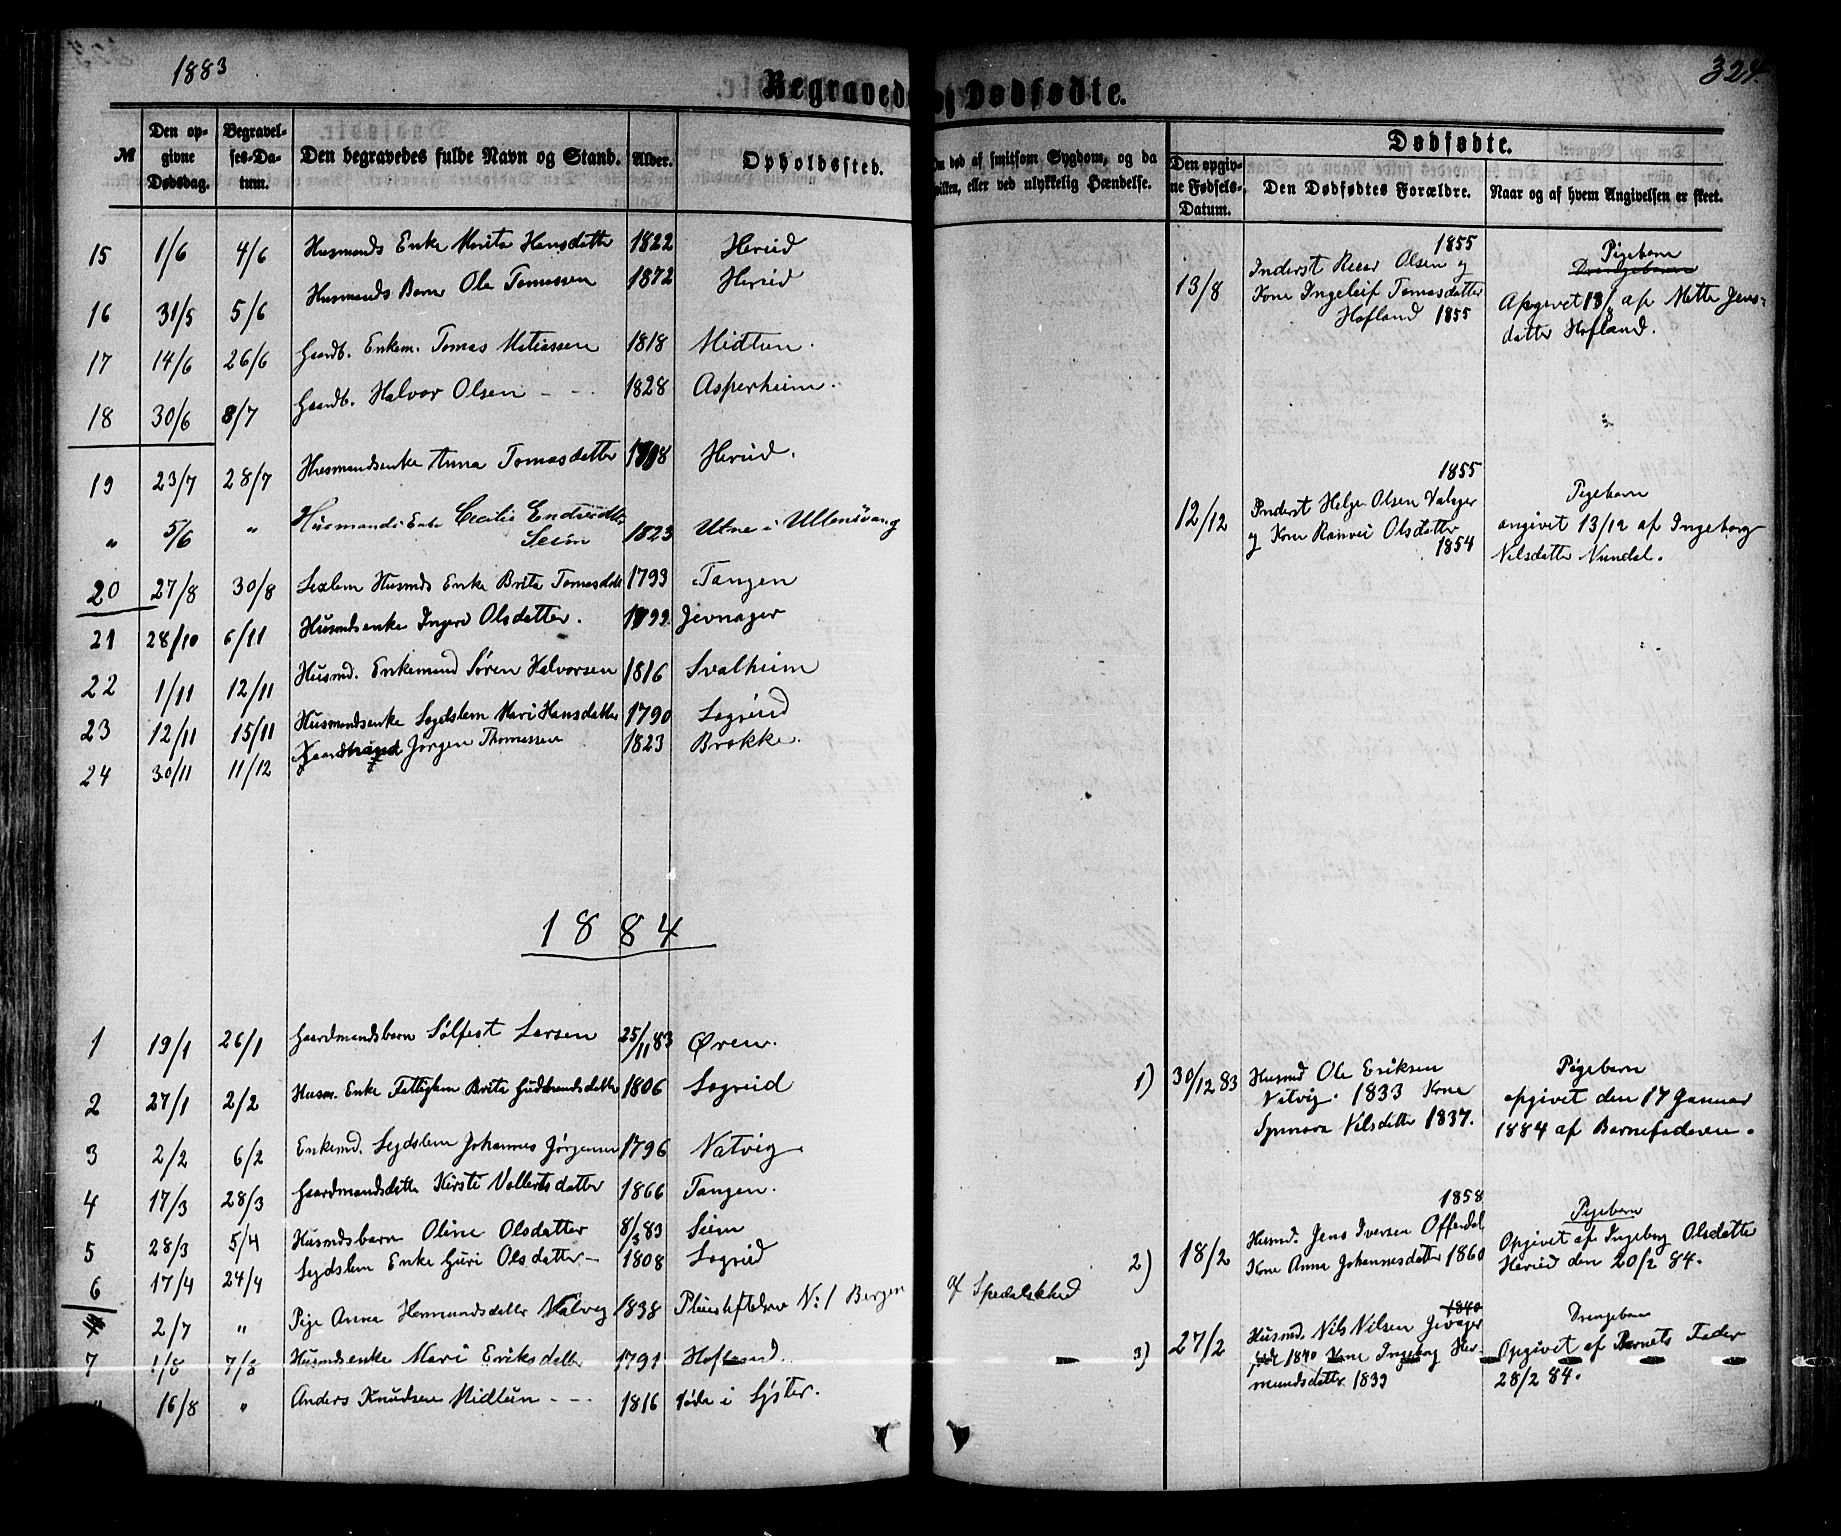 1883
324.
Begravede og Dødfødte.
№ Den opgivne Dødsdag. Begravelses-Datum. Den begravedes fulde Navn og Stand. Alder. Opholdssted.
Om død af smitsom Sygdom, og da hvilken, eller ved ulykkelig Hændelse.
Dødfødte.
Den opgivne Fødsels-Datum. Den Dødfødtes Forældre. Naar og af hvem Angivelsen er skeet.
15 1/6 4/6 Husmands Enke Marita Hansdatter 1822 Hereid
16 31/5 5/6 Husmands Barn Ole Tomassen 1872 Hereid
17 14/6 26/6 Gaardb. Enkem. Tomas Matiassen 1818 Midtun.
18 30/6 8/7 Gaardb. Halvor Olsen - - 1828 Asperheim.
19 23/7 28/7 Husmandsenke Anna Tomasdatter Hereid.
" 5/6 " Husmands Enke Cecilie
Seim 1823 Utne i Ullensvang
20 27/8 30/8 Husmds Enke Brita Tomasdtr 1793 Tangen
21 28/10 6/11 Husmdsenke Ingeri Olsdatter. 1799 Jevnager
22 1/11 12/11 Husmd. Enkemand Søren Halvorsen 1816 Svalheim
23 12/11 15/11 Husmandsenke Lægdslem Mari Hansdatter 1790 Sogreid
24 30/11 11/12 Jørgen Thomassen 1823 Brekke.
1884
1 19/1 26/1 Gaardmandsbarn Sølfest Larsen 25/11 83 Øren.
2 27/1 2/2 Husm. Enke Fattiglem Brita Gudbrandsdatter 1806 Sogreid
3 2/2 6/2 Enkemd. Legdslem Johannes Jørgensen 1796 Natvig.
4 17/3 28/3 Gaardmandsdatter Kirsti Vollertsdatter 1866 Tangen.
5 28/3 5/4 Husmdsbarn Oline Olsdatter 8/3 83 Seim
6 17/4 24/4 Legdslem Enke Guri Olsdatter - 1808 Sogreid
2/7 " Pige Anna Hermundsdatter 1838 Pleiestiftelse N: 1 Bergen af Spedalskhed
7 1/8 7/8 Husmdsenke Mari Eriksdatter 1791 Hofland.
16/8 " Anders Knudsen Midtun - - - 1816 i Lyster.
1855
13/8 Inderst Olsen og
Kone Ingeleif Tomasdatter
Hofland 1855
Pigebarn
Drengebarn
Opgivet 13/8 af Mette Jens-
datter Hofland.
1855
12/12 Inderst Helge Olsen
og Kone Ranvei Olsdatter
1854
Pigebarn
angivet 13/12 af Ingeborg
Nilsdatter Nundal.
1) 30/12 83 Husmd Ole Eriksen
Natvig. 1833 Kone
Synneva Nilsdatter 1837.
Pigebarn
opgivet den 17 Januar
1884 af Barnefaderen.
1858
2) 18/2 Husmd. Jens Iversen Offerdal
Kone Anna Johannesdatter 1860
Pigebarn
Opgivet af Ingeborg Olsdatter
Hereid den 20/2 84.
1840
3) 27/2 Husmd. Nils Nilsen Jevnager
født 1840 Kone Ingeborg Her-
mundsdatter 1839
Drengebarn
Opgivet af Barnets Fader
28/2 84.